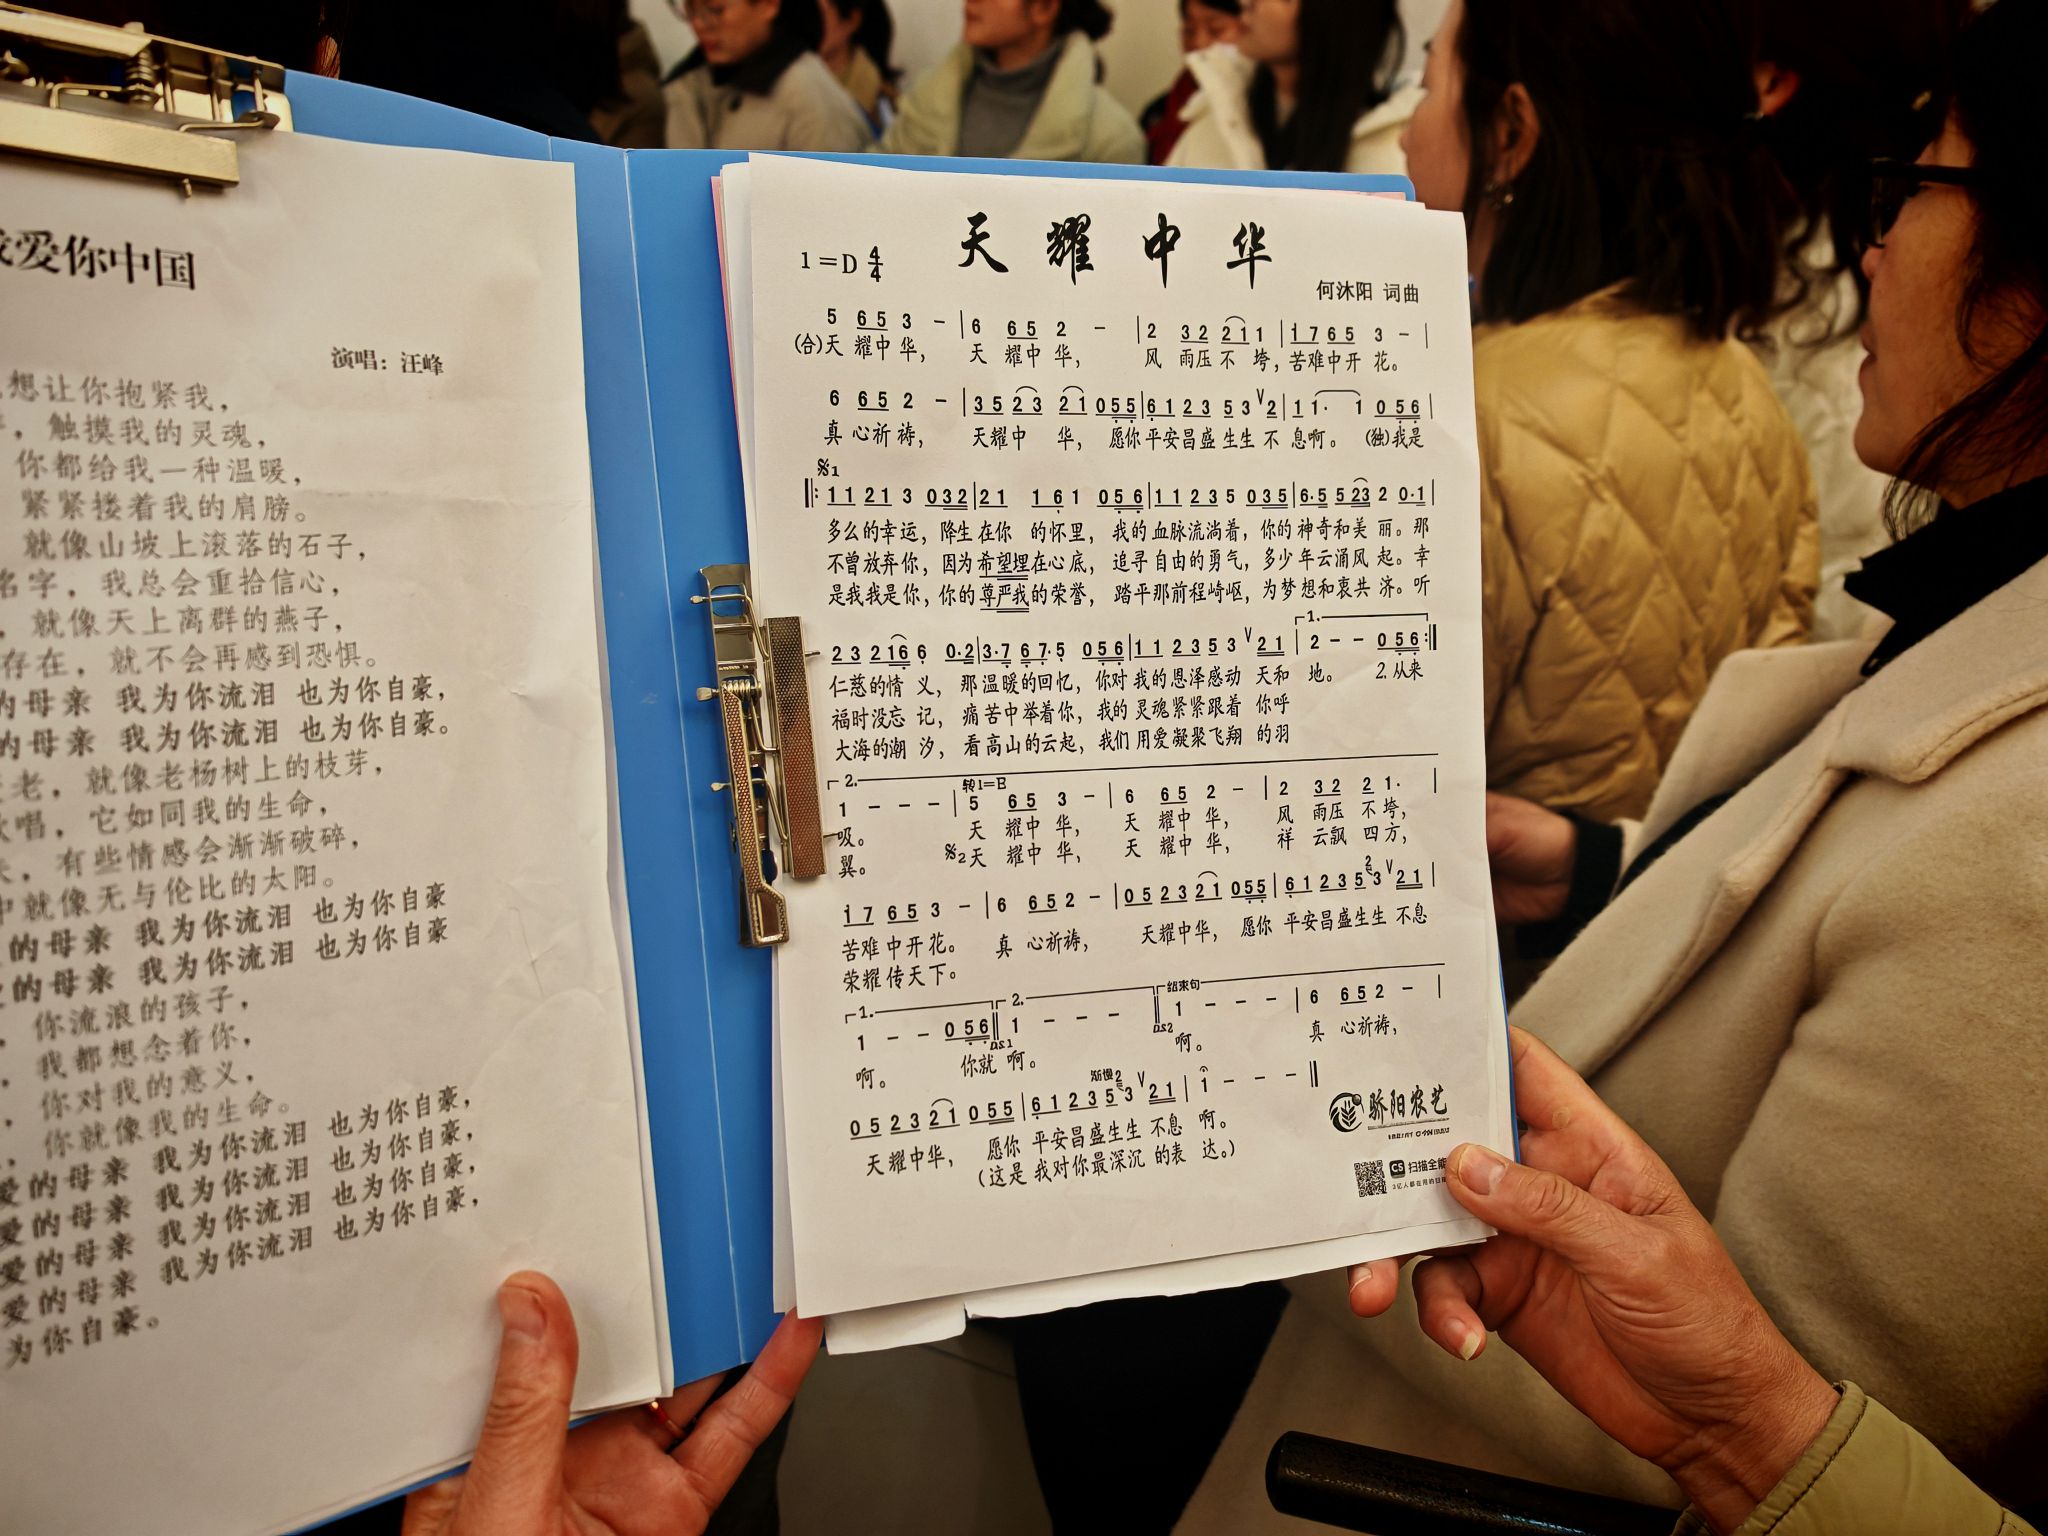 爱你中国
演唱：汪峰
想让你抱紧我，
，触摸我的灵魂，
你都给我一种温暖，
紧紧搂着我的肩膀。
就像山坡上滚落的石子，
名字，我总会重拾信心，
，就像天上离群的燕子，
存在，就不会再感到恐惧。
的母亲 我为你流泪 也为你自豪，
的母亲 我为你流泪 也为你自豪。
老，就像老杨树上的枝芽，
唱，它如同我的生命，
，有些情感会渐渐破碎，
中就像无与伦比的太阳。
的母亲 我为你流泪 也为你自豪
的母亲 我为你流泪 也为你自豪
你流浪的孩子，
，我都想念着你，
，你对我的意义，
，你就像我的生命。
爱的母亲 我为你流泪 也为你自豪，
爱的母亲 我为你流泪 也为你自豪，
爱的母亲 我为你流泪 也为你自豪，
爱的母亲 我为你流泪 也为你自豪，
为你自豪。
天耀中华
1=D 4/4
何沐阳 词曲
5 65 3 - | 6 65 2 - | 2 32 211 | 1765 3 - |
(合)天 耀中 华， 天 耀中 华， 风 雨压 不 垮，苦难中开 花。
6 65 2 - | 35 23 21 055 | 61 23 53 V2 | 11· 1 056 |
真 心祈 祷， 天耀中 华， 愿你平安昌盛生生 不 息啊。 (独)我是
𝄋1
‖: 11 21 3 032 | 21 161 056 | 11 235 035 | 6·5 523 2 0·1 |
多么的幸运，降生在你 的怀里，我的血脉流淌着，你的神奇和美 丽。那
不曾放弃你，因为希望埋在心底，追寻自由的勇气，多少年云涌风 起。幸
是我我是你，你的尊严我的荣誉，踏平那前程崎岖，为梦想和衷共 济。听
23 216 6 0·2 | 3·7 67·5 056 | 11 235 3 V 21 | 1. 2 - - 056 :‖
仁慈的情 义，那温暖的回忆，你对我的恩泽感动 天和 地。 2.从来
福时没忘 记，痛苦中举着你，我的灵魂紧紧跟着 你呼
大海的潮 汐，看高山的云起，我们用爱凝聚飞翔 的羽
2. 转1=E
1 - - - | 5 65 3 - | 6 65 2 - | 2 32 21· |
吸。 天 耀中 华， 天 耀中 华， 风 雨压 不 垮，
翼。 𝄋2天 耀中 华， 天 耀中 华， 祥 云飘 四 方，
17 65 3 - | 6 652 - | 05 23 21 055 | 61 235 3 V 21 |
苦难中开花。 真 心祈祷， 天耀中华， 愿你 平安昌盛生生 不息
荣耀传天下。
1. 2. 结束句
1 - - 056 ‖ 1 - - - ‖ 1 - - - | 6 652 - |
D.S.1 D.S.2
啊。 你就 啊。 啊。 真 心祈祷，
渐慢
05 23 21 055 | 61 235 3 V 21 | 1 - - - ‖
天耀中华， 愿你 平安昌盛生生 不息 啊。
(这是 我对你最深沉 的表 达。)
骄阳农艺
CS 扫描全能
3亿人都在用的扫描